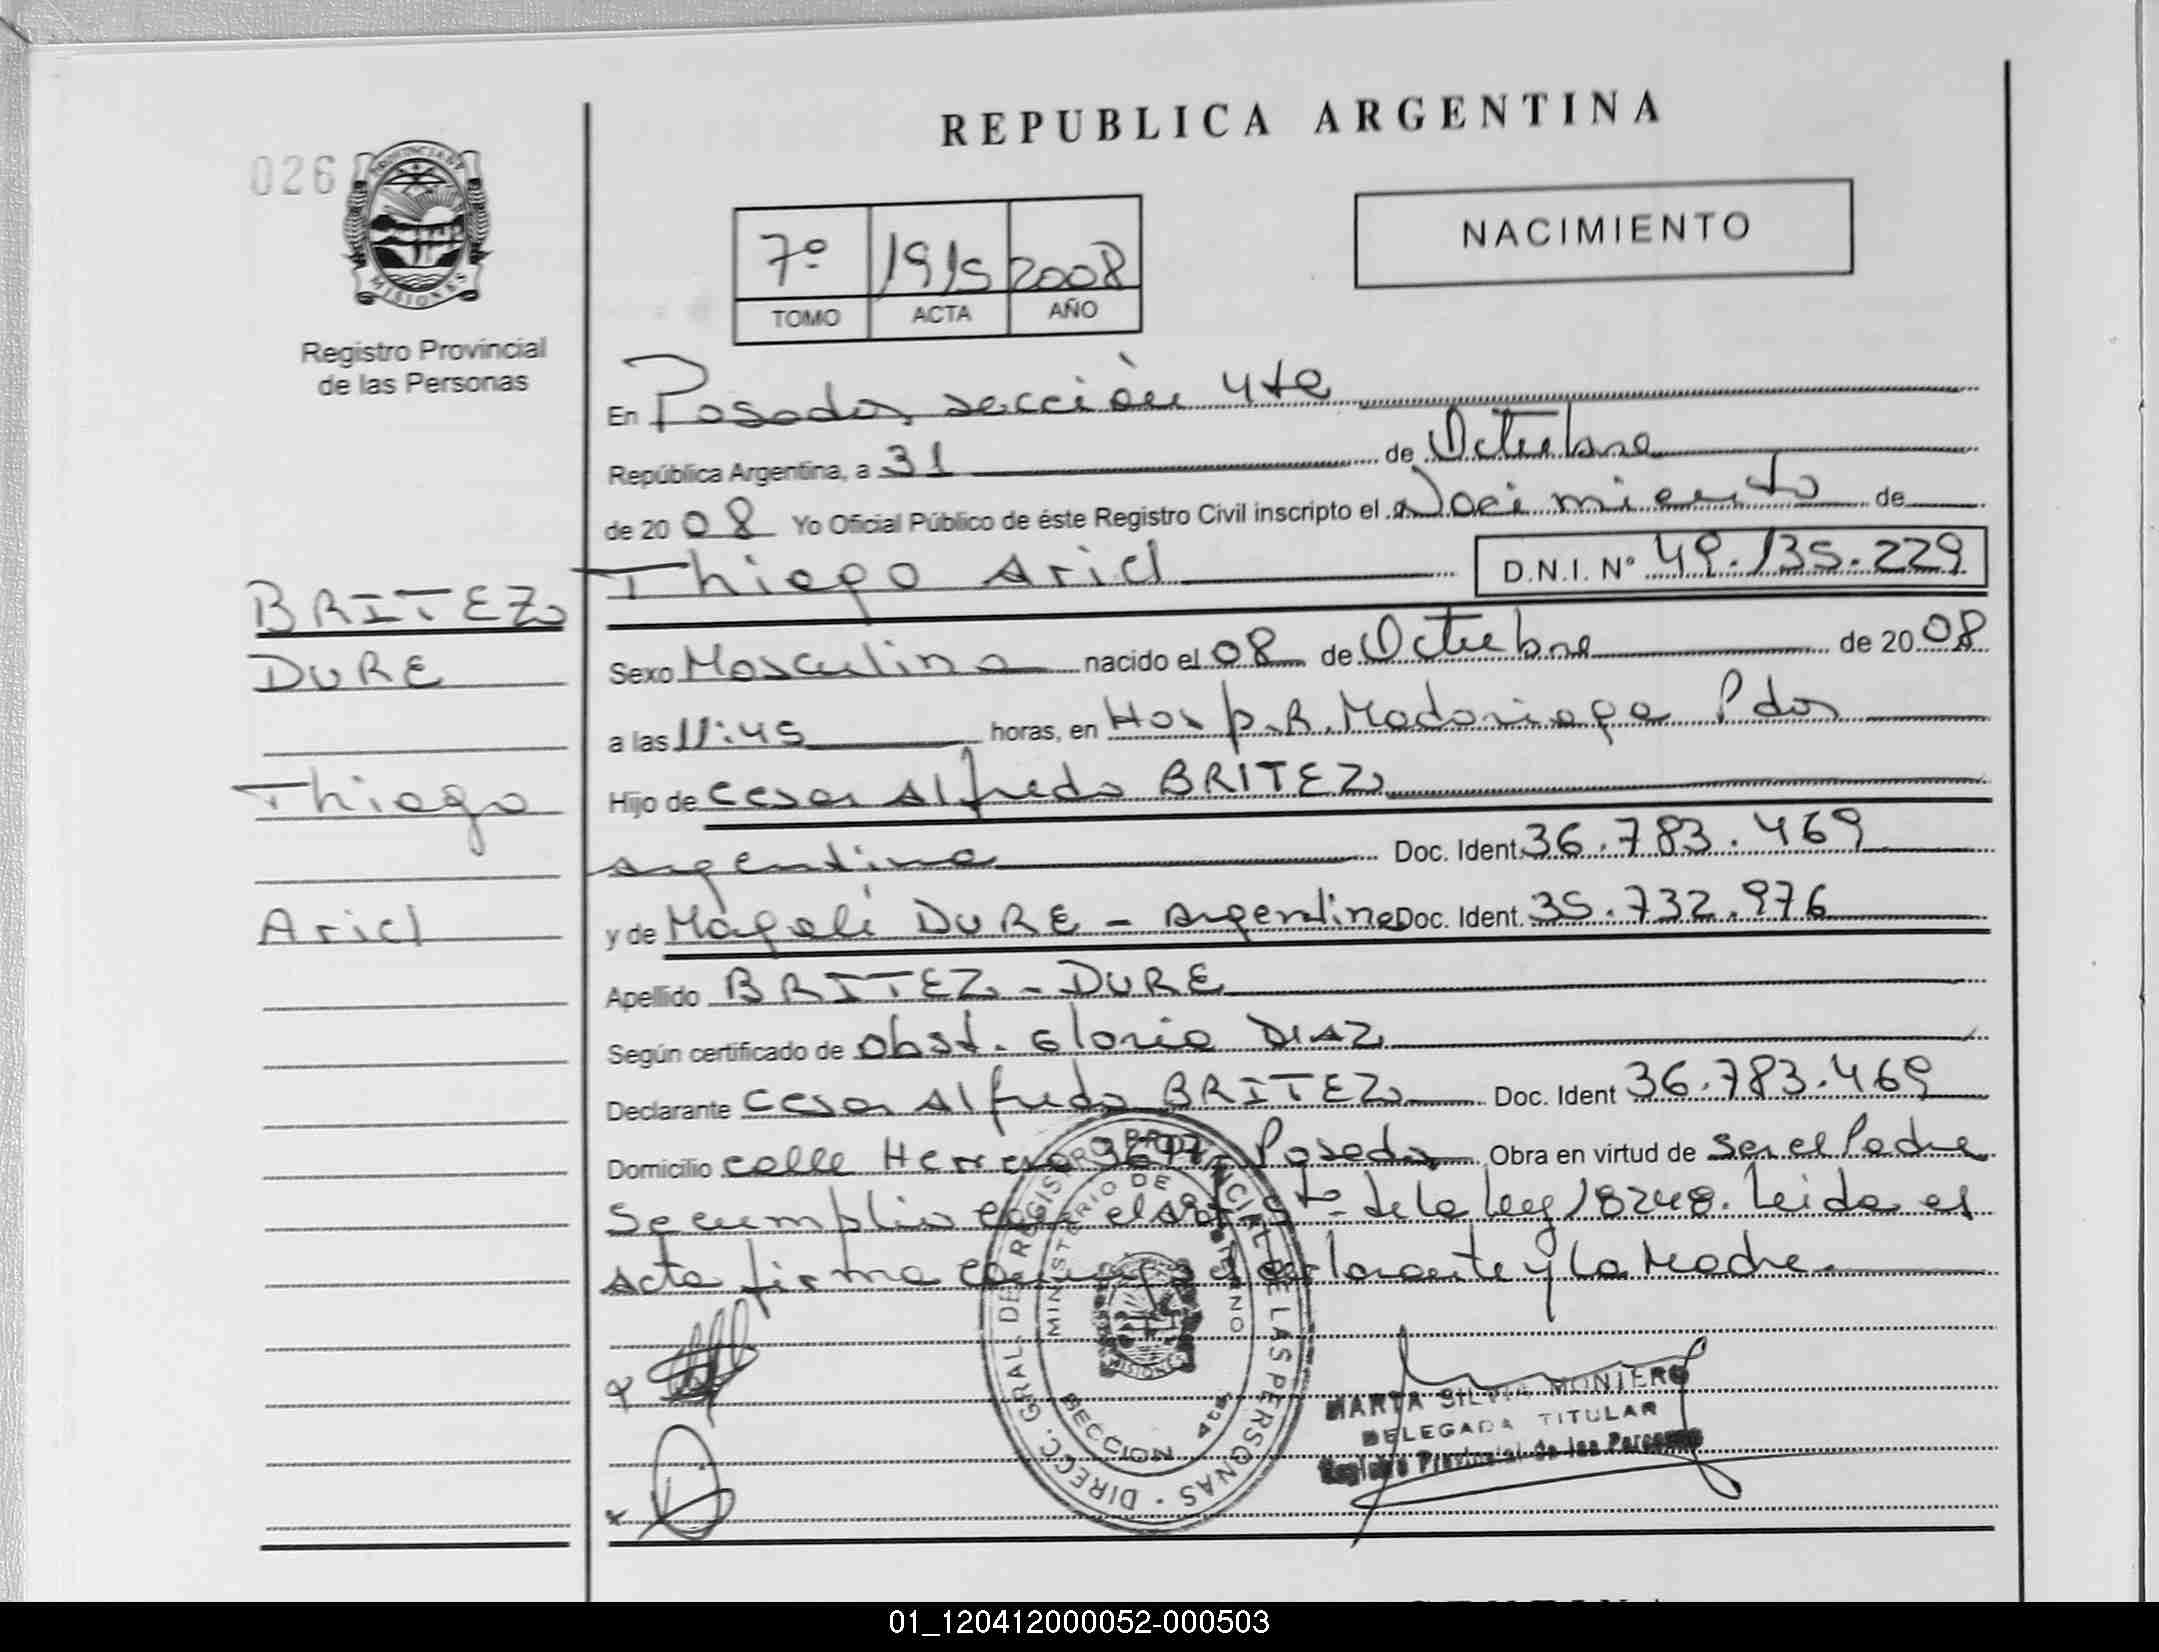 REPUBLICA ARGENTINA
026
PROVINCIA DE
MISIONES
Registro Provincial
de las Personas
7º 1915 2008
TOMO ACTA AÑO
NACIMIENTO
En Posadas, sección 4ta
República Argentina, a 31 de Octubre
de 2008 Yo Oficial Público de éste Registro Civil inscripto el Nacimiento de
Thiago Ariel D.N.I. Nº 49.135.229
BRITEZ
DURE
Thiago
Ariel
Sexo Masculino nacido el 08 de Octubre de 2008
a las 11:45 horas, en Hosp. R. Madariaga Pdas
Hijo de Cesar Alfredo BRITEZ
Argentino Doc. Ident. 36.783.469
y de Magalí DURE - Argentina Doc. Ident. 35.732.976
Apellido BRITEZ - DURE
Según certificado de Obst. Gloria DIAZ
Declarante Cesar Alfredo BRITEZ Doc. Ident 36.783.469
Domicilio calle Herrera Posadas Obra en virtud de ser el Padre
Se cumplio con el Art. de la ley 18248. Leida el
Acta firma el declarante y la Madre.
DIRECC. GRAL. DEL REGISTRO PROVINCIAL DE LAS PERSONAS
MINISTERIO DE GOBIERNO
MISIONES
SECCION 4ta
MARTA SILVIA MONTERO
DELEGADA TITULAR
Registro Provincial de las Personas
01_120412000052-000503